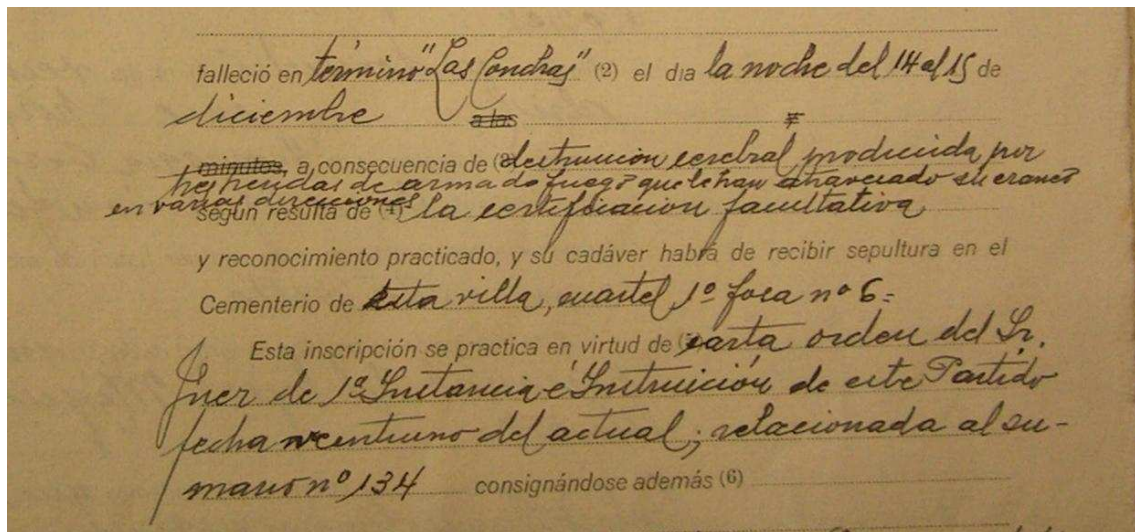 falleció en término "Las Conchas" (2) el dia la noche del 14 al 15 de
diciembre a las
minutos, a consecuencia de (3) destrucción cerebral producida por
tres heridas de arma de fuego que le han atravesado su craneo
en varias direcciones
según resulta de (4) la certificación facultativa
y reconocimiento practicado, y su cadáver habrá de recibir sepultura en el
Cementerio de esta villa, cuartel 1º fosa nº 6=
Esta inscripción se practica en virtud de carta orden del Sr.
Juez de 1ª Instancia é Instruición de este Partido
fecha veintiuno del actual; relacionada al su-
mario nº 134 consignándose además (6)